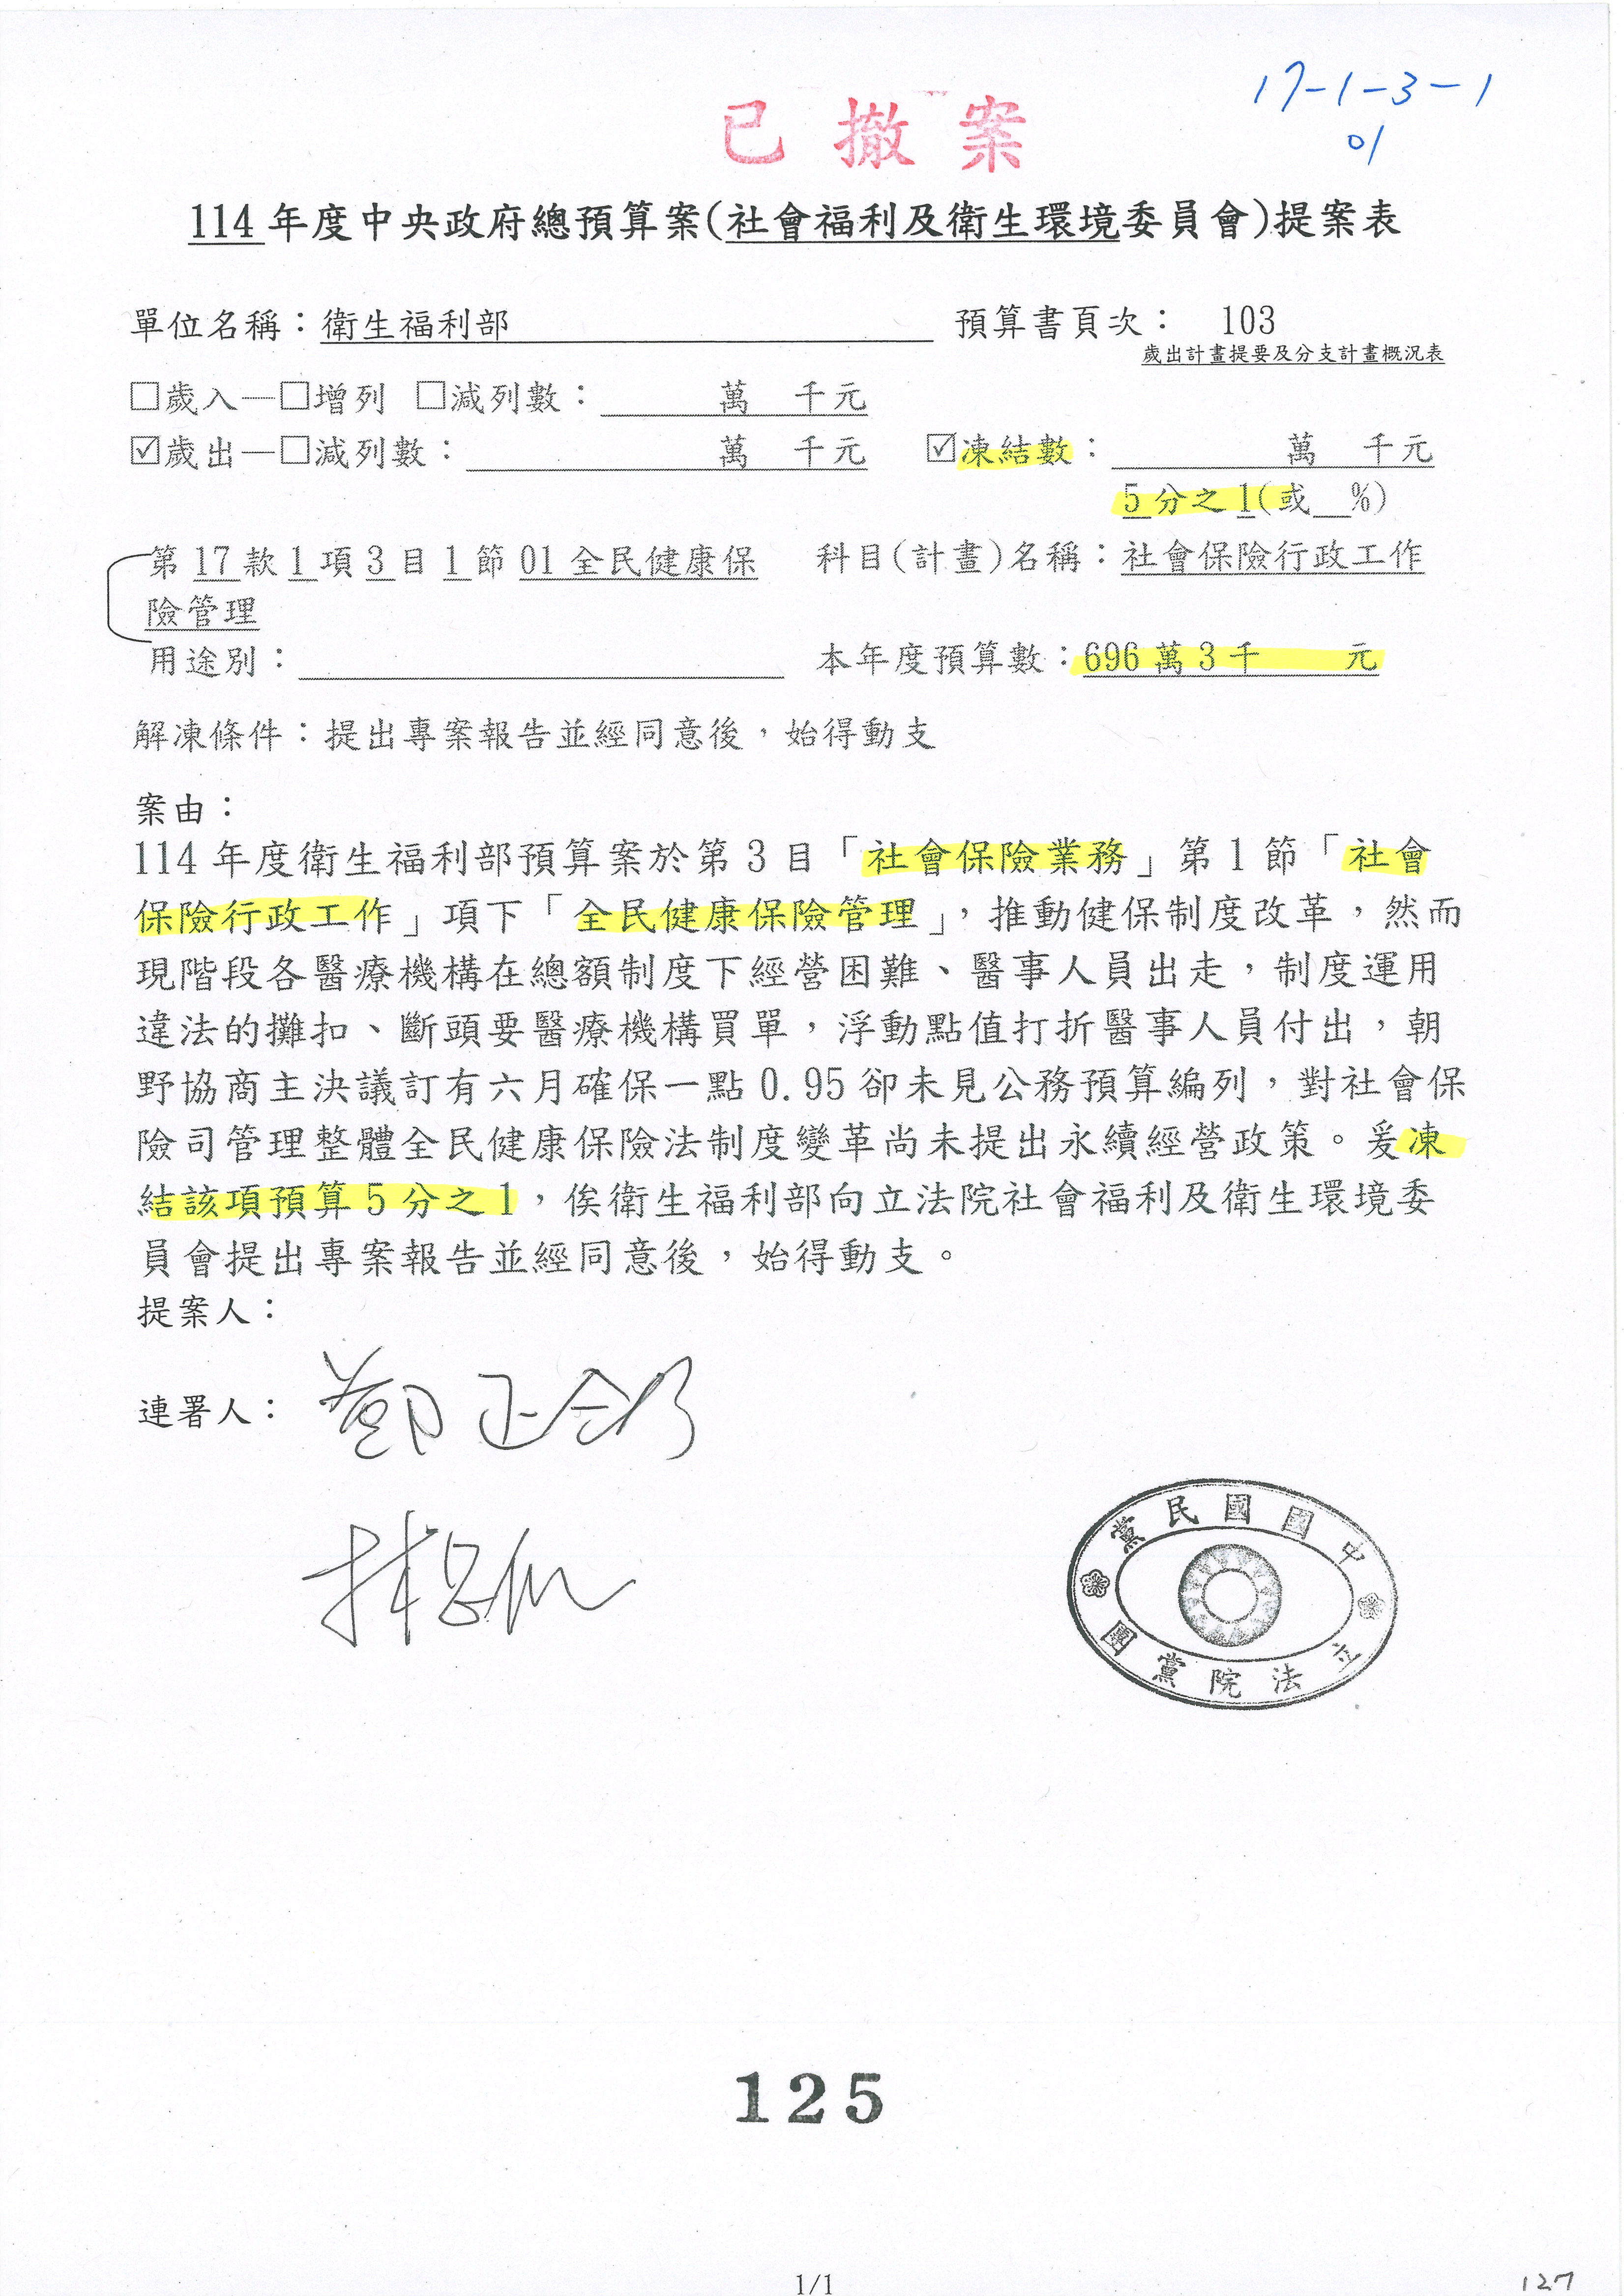 17-1-3-1
01
已撤案
114年度中央政府總預算案(社會福利及衛生環境委員會)提案表
單位名稱：衛生福利部 預算書頁次： 103
歲出計畫提要及分支計畫概況表
□歲入—□增列 □減列數： 萬 千元
☑歲出—□減列數： 萬 千元 ☑凍結數： 萬 千元
5分之1(或__%)
第17款1項3目1節01全民健康保 科目(計畫)名稱：社會保險行政工作
險管理
用途別： 本年度預算數：696萬3千 元
解凍條件：提出專案報告並經同意後，始得動支
案由：
114年度衛生福利部預算案於第3目「社會保險業務」第1節「社會
保險行政工作」項下「全民健康保險管理」，推動健保制度改革，然而
現階段各醫療機構在總額制度下經營困難、醫事人員出走，制度運用
違法的攤扣、斷頭要醫療機構買單，浮動點值打折醫事人員付出，朝
野協商主決議訂有六月確保一點0.95卻未見公務預算編列，對社會保
險司管理整體全民健康保險法制度變革尚未提出永續經營政策。爰凍
結該項預算5分之1，俟衛生福利部向立法院社會福利及衛生環境委
員會提出專案報告並經同意後，始得動支。
提案人：
連署人：
中國國民黨
立法院黨團
125
1/1
127